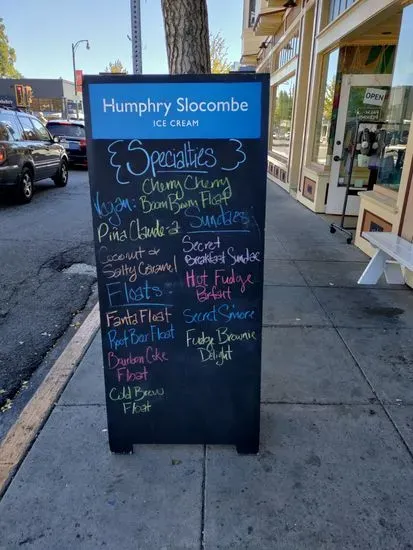 Humphry Slocombe
ICE CREAM
Specialties
Cherry Cherry
Boom Boom Float
Vegan:
Piña Claude-a
Coconut or
Salty Caramel
Floats
Fanta Float
Root Beer Float
Bourbon Coke
Float
Cold Brew
Float
Sundaes
Secret
Breakfast Sundae
Hot Fudge
Parfart
Secret S'more
Fudge Brownie
Delight
OPEN